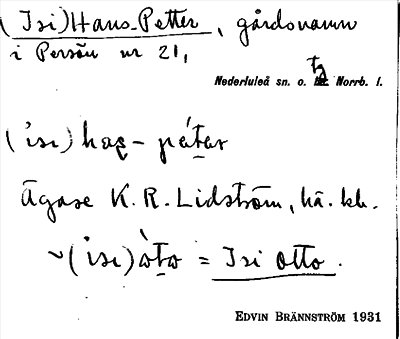 (Isi) Hans-Petter, gårdsnamn
i Persön nr 21,
Nederluleå sn. o. tg Norrb. l.
(isi) has - pétar
Ägare K. R. Lidström, hä. kh.
~ (isi) òto = Isi Otto.
EDVIN BRÄNNSTRÖM 1931